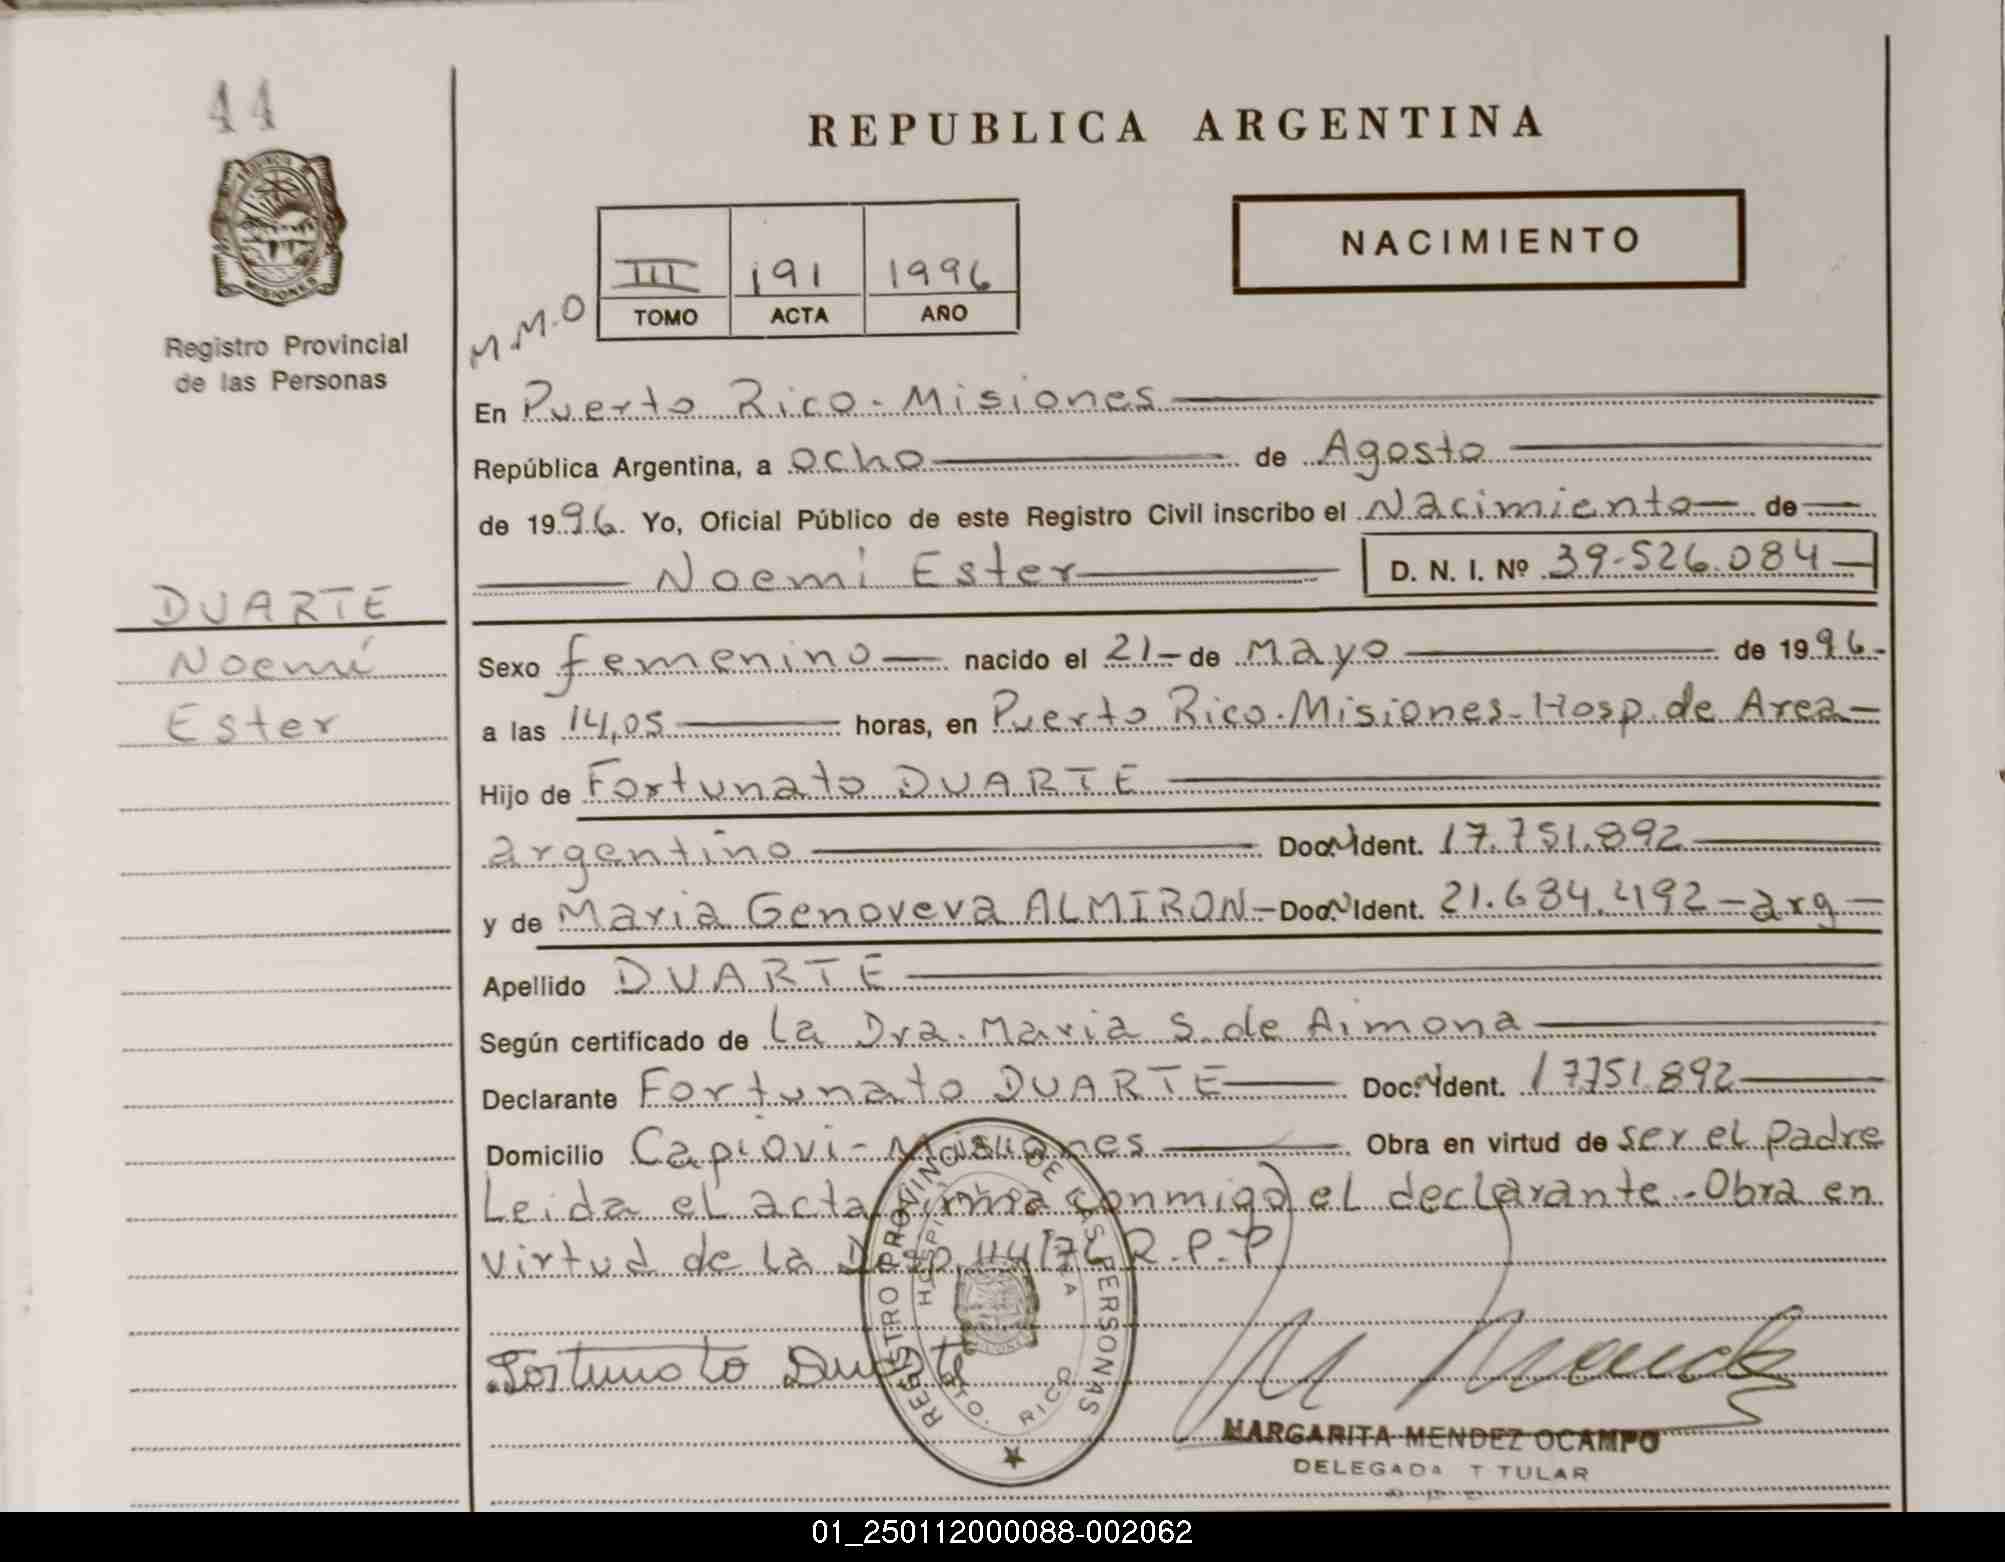 44
REPUBLICA ARGENTINA
NACIMIENTO
III 191 1996
TOMO ACTA AÑO
M.M.O
MISIONES
Registro Provincial
de las Personas
En Puerto Rico - Misiones
República Argentina, a ocho de Agosto
de 1996. Yo, Oficial Público de este Registro Civil inscribo el Nacimiento de
Noemí Ester D. N. I. Nº 39.526.084
DUARTE
Noemí
Ester
Sexo femenino nacido el 21 de Mayo de 1996
a las 14,05 horas, en Puerto Rico - Misiones - Hosp. de Area
Hijo de Fortunato DUARTE
argentino Doc. Ident. 17.751.892
y de Maria Genoveva ALMIRON Doc. Ident. 21.684.492 - arg
Apellido DUARTE
Según certificado de la Dra. Maria S. de Aimona
Declarante Fortunato DUARTE Doc. Ident. 17751.892
Domicilio Capiovi - Misiones Obra en virtud de ser el padre
Leida el acta firma conmigo el declarante. Obra en
virtud de la Disp. 114/76 R.P.P
Fortunato Duarte
REGISTRO PROVINCIAL DE LAS PERSONAS
HOSPITAL
PTO. RICO
MARGARITA MENDEZ OCAMPO
DELEGADA TITULAR
01_250112000088-002062